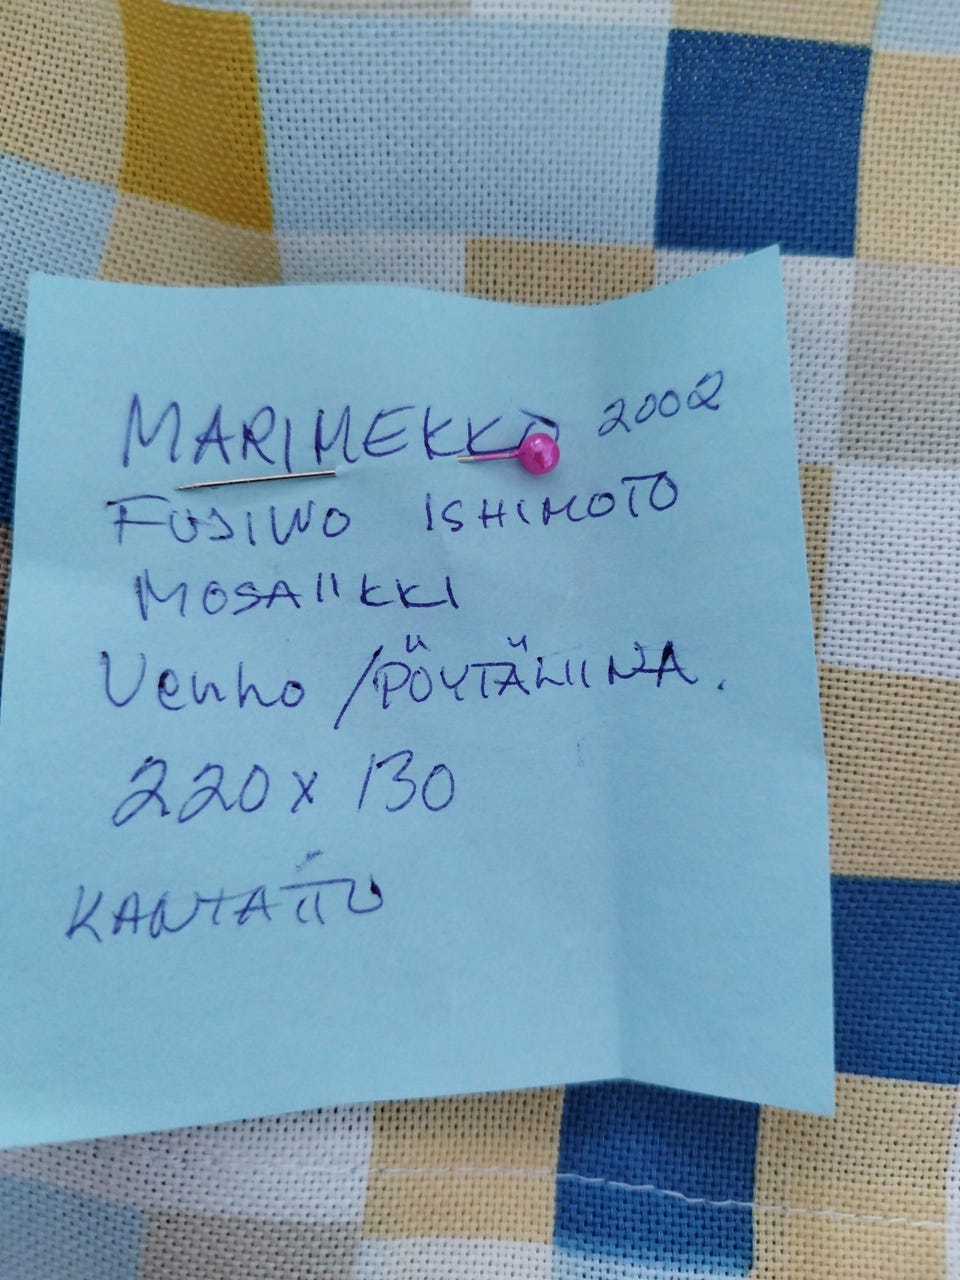 MARIMEKKO 2002
FUJIWO ISHIMOTO
MOSAIIKKI
Verho / PÖYTÄLIINA.
220 x 130
KANTATTU